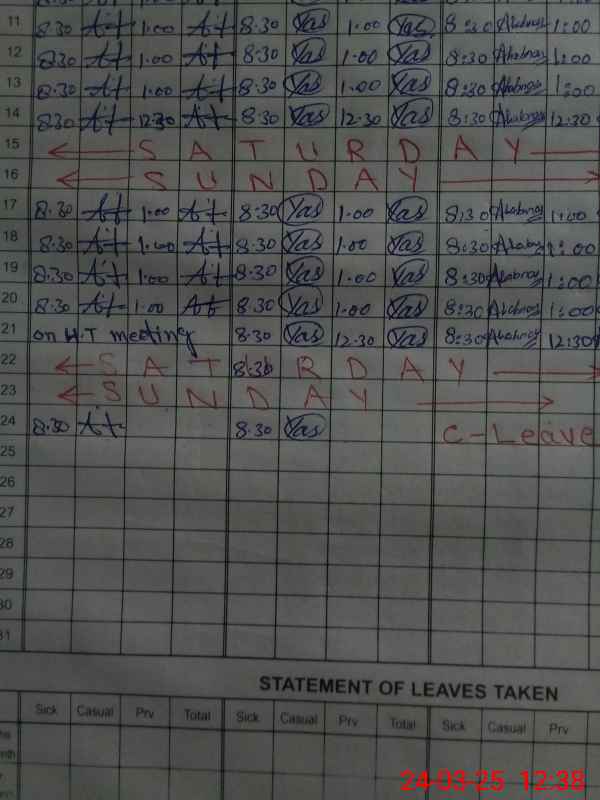 11 8:30 At 1.00 At 8:30 Yas 1.00 Yas 8:30 1:00
12 8:30 At 1.00 At 8:30 Yas 1.00 Yas 8:30 1:00
13 8:30 At 1.00 At 8:30 Yas 1.00 Yas 8:30 1:00
14 8:30 At 12:30 At 8:30 Yas 12.30 Yas 8:30 12:30
15 SATURDAY
16 SUNDAY
17 8.30 At 1.00 At 8:30 Yas 1.00 Yas 8:30 1:00
18 8:30 At 1.00 At 8:30 Yas 1.00 Yas 8:30 1:00
19 8:30 At 1.00 At 8:30 Yas 1.00 Yas 8:30 1:00
20 8:30 At 1.00 At 8:30 Yas 1.00 Yas 8:30 1:00
21 on H.T meeting 8:30 Yas 12.30 Yas 8:30 12:30
22 SAT 8:30 RDAY
23 SUNDAY
24 8:30 At 8.30 Yas C-Leave
25
26
27
28
29
30
31
STATEMENT OF LEAVES TAKEN
Sick Casual Prv Total Sick Casual Prv Total Sick Casual Prv
24-03-25 12:38